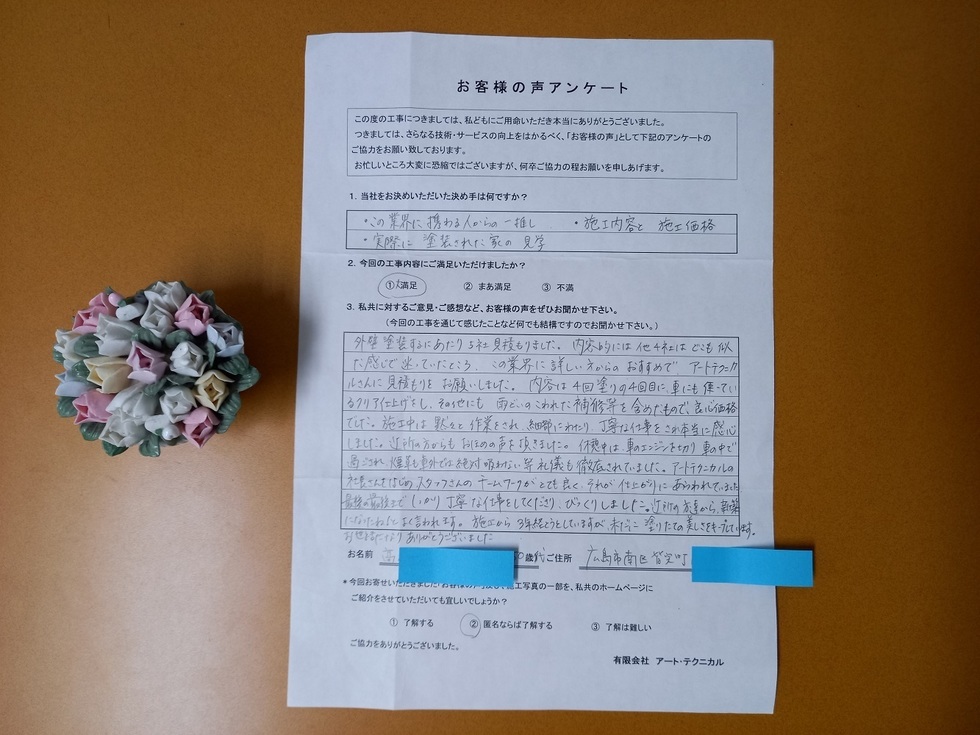 お客様の声アンケート
この度の工事につきましては、私どもにご用命いただき本当にありがとうございました。
つきましては、さらなる技術・サービスの向上をはかるべく、「お客様の声」として下記のアンケートの
ご協力をお願い致しております。
お忙しいところ大変に恐縮ではございますが、何卒ご協力の程お願いを申しあげます。
1. 当社をお決めいただいた決め手は何ですか？
・この業界に携わる人からの一推し ・施工内容と 施工価格
・実際に 塗装された家の 見学
2. 今回の工事内容にご満足いただけましたか？
① 大満足 ② まあ満足 ③ 不満
3. 私共に対するご意見・ご感想など、お客様の声をぜひお聞かせ下さい。
（今回の工事を通じて感じたことなど何でも結構ですのでお聞かせ下さい。）
外壁塗装するにあたり5社見積もりました。内容的には他4社はどこも似
た感じで迷っていたところ、この業界に詳しい方からのおすすめで アートテクニカ
ルさんに見積もりをお願いしました。内容は4回塗りの4回目に、車にも使ってい
るクリア仕上げをし、その他にも 雨どいのこわれた補修等を含めたもので、良心価格
でした。施工中は黙々と作業をされ、細部にわたり、丁寧な仕事をされ本当に感心
しました。近所の方からもおほめの声を頂きました。休憩中は、車のエンジンを切り 車の中で
過ごされ、煙草も車外では絶対吸わない等 礼儀も徹底されていました。アートテクニカルの
社長さんをはじめ スタッフさんの チームワークが とても良く、それが 仕上がりに あらわれていました
最後の最後まで しっかり丁寧な仕事をしてくださり、びっくりしました。近所の 方から、新築
になったねとよく言われます。施工から 3年経とうとしていますが、未だに 塗りたての美しさを しています。
ありがとうございました
お名前 高 歳代 ご住所 広島市南区皆実町
＊今回お寄せいただきました 工写真の一部を、私共のホームページに
ご紹介をさせていただいても宜しいでしょうか？
① 了解する ② 匿名ならば了解する ③ 了解は難しい
ご協力をありがとうございました。
有限会社 アート・テクニカル